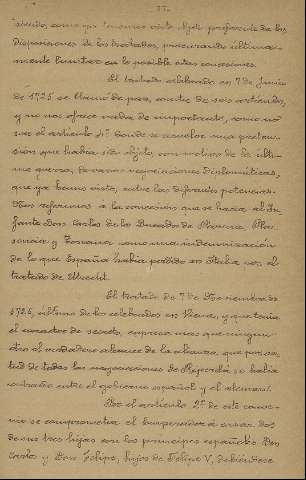 77.
siendo, como ya hemos visto, objeto preferente de las
disposiciones de los tratados, procurando última-
mente limitar en lo posible estas concesiones.
El tratado celebrado en 7 de Junio
de 1725 se llamó de paz, consta de seis artículos,
y no nos ofrece nada de importante, como no
sea el artículo 4º donde se resuelve una preten-
sión que había sido objeto, con motivo de la últi-
ma guerra, de varias negociaciones diplomáticas,
que ya hemos visto, entre las diferentes potencias.
Nos referimos a la concesión que se hacía al In-
fante Don Carlos de los Ducados de Parma, Pla-
sencia y Toscana como una indemnización
de lo que España había perdido en Italia con el
tratado de Utrecht.
El tratado de 7 de Noviembre de
1725, último de los celebrados en Viena, y que tenía
el carácter de secreto, expresa más que ningún
otro el verdadero alcance de la alianza que por vir-
tud de todas las negociaciones de Riperdá, se había
contraído entre el gobierno español y el alemán.
Por el artículo 2º de este conve-
nio se comprometía el Emperador á casar dos
de sus tres hijas con los príncipes españoles Don
Carlos y Don Felipe, hijos de Felipe V, debiéndose